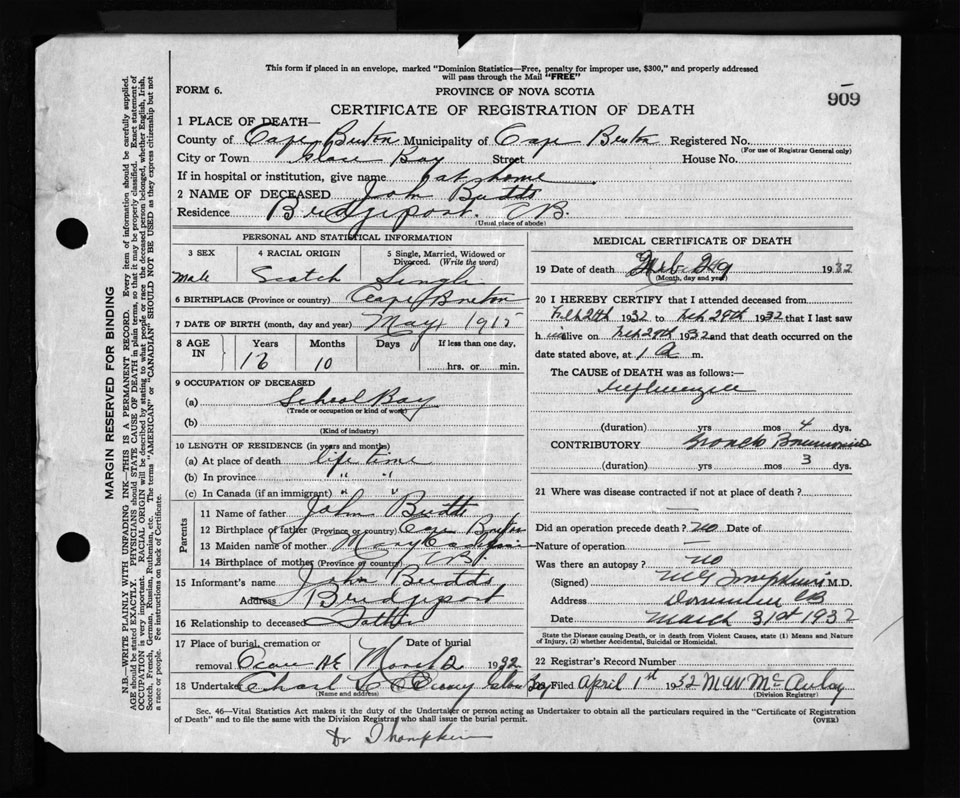 This form if placed in an envelope, marked "Dominion Statistics—Free, penalty for improper use, $300," and properly addressed
will pass through the Mail "FREE"
FORM 6.
PROVINCE OF NOVA SCOTIA
909
CERTIFICATE OF REGISTRATION OF DEATH
1 PLACE OF DEATH—
County of Cape Breton Municipality of Cape Breton Registered No.
(For use of Registrar General only)
City or Town Glace Bay Street House No.
If in hospital or institution, give name at home
2 NAME OF DECEASED John Budds
Residence Bridgeport. CB.
(Usual place of abode)
PERSONAL AND STATISTICAL INFORMATION
3 SEX 4 RACIAL ORIGIN 5 Single, Married, Widowed or
Divorced. (Write the word)
Male Scotch Single
6 BIRTHPLACE (Province or country) Cape Breton
7 DATE OF BIRTH (month, day and year) May 1915
8 AGE IN Years Months Days If less than one day,
16 10 hrs. or min.
9 OCCUPATION OF DECEASED
(a) School Boy
(Trade or occupation or kind of work)
(b)
(Kind of industry)
10 LENGTH OF RESIDENCE (in years and months)
(a) At place of death life time
(b) In province " "
(c) In Canada (if an immigrant) " "
Parents
11 Name of father John Budds
12 Birthplace of father (Province or country) Cape Breton
13 Maiden name of mother Mary
14 Birthplace of mother (Province or country) CB
15 Informant's name John Budds
Address Bridgeport
16 Relationship to deceased Father
17 Place of burial, cremation or Date of burial
removal March 2 1932
18 Undertaker Glace Bay
(Name and address)
MEDICAL CERTIFICATE OF DEATH
19 Date of death Feb. 29 1932
(Month, day and year)
20 I HEREBY CERTIFY that I attended deceased from
Feb 1932 to Feb 29th 1932 that I last saw
him alive on Feb 29th 1932 and that death occurred on the
date stated above, at 1 A m.
The CAUSE of DEATH was as follows:—
(duration) yrs mos 4 dys.
CONTRIBUTORY
(duration) yrs mos 3 dys.
21 Where was disease contracted if not at place of death?
—
Did an operation precede death? no Date of
Nature of operation —
Was there an autopsy? no
(Signed) M.D.
Address Dominion CB
Date March 31st 1932
State the Disease causing Death, or in death from Violent Causes, state (1) Means and Nature
of Injury, (2) whether Accidental, Suicidal or Homicidal.
22 Registrar's Record Number
Filed April 1st 1932 McAulay
(Division Registrar)
Sec. 46—Vital Statistics Act makes it the duty of the Undertaker or person acting as Undertaker to obtain all the particulars required in the "Certificate of Registration
of Death" and to file the same with the Division Registrar who shall issue the burial permit.
(OVER)
Dr Thompkin
MARGIN RESERVED FOR BINDING
N.B.—WRITE PLAINLY WITH UNFADING INK—THIS IS A PERMANENT RECORD. Every item of information should be carefully supplied.
AGE should be stated EXACTLY. PHYSICIANS should STATE CAUSE OF DEATH in plain terms, so that it may be properly classified. Exact statement of
OCCUPATION is very important. RACIAL ORIGIN will be described by stating to what people or race the deceased person belonged, whether English, Irish,
Scotch, French, German, Russian, Ruthenian, etc. The terms "AMERICAN" or "CANADIAN" SHOULD NOT BE USED as they express citizenship but not
a race or people. See instructions on back of Certificate.